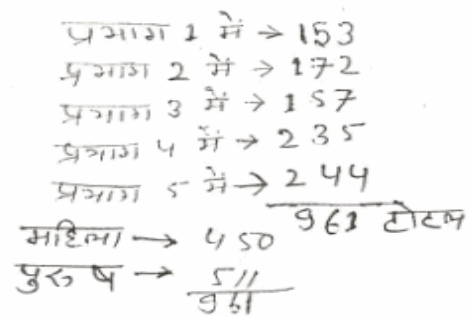 प्रभाग 1 में → 153
प्रभाग 2 में → 172
प्रभाग 3 में → 157
प्रभाग 4 में → 235
प्रभाग 5 में → 244
961 टोटल
महिला → 450
पुरुष → 511
961